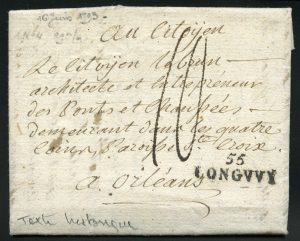 16 Juin 1793
Au Citoyen
Le Citoyen Lebrun
architecte et Entrepreneur
des Ponts et Chaussées
demeurant dans les quatre
Coins, Paroisse Ste Croix.
a Orléans
10
55
LONGVVY
Texte historique